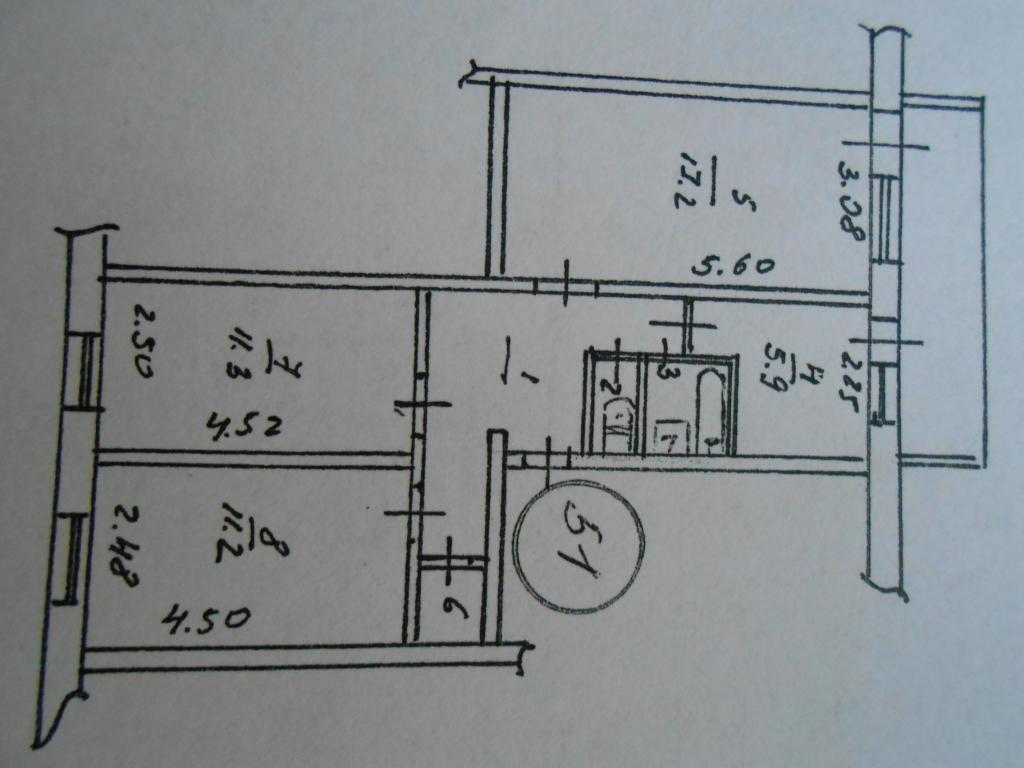 5
17.2
3.08
5.60
4
5.9
2.25
3
2
1
7
11.3
2.50
4.52
51
8
11.2
2.48
4.50
6